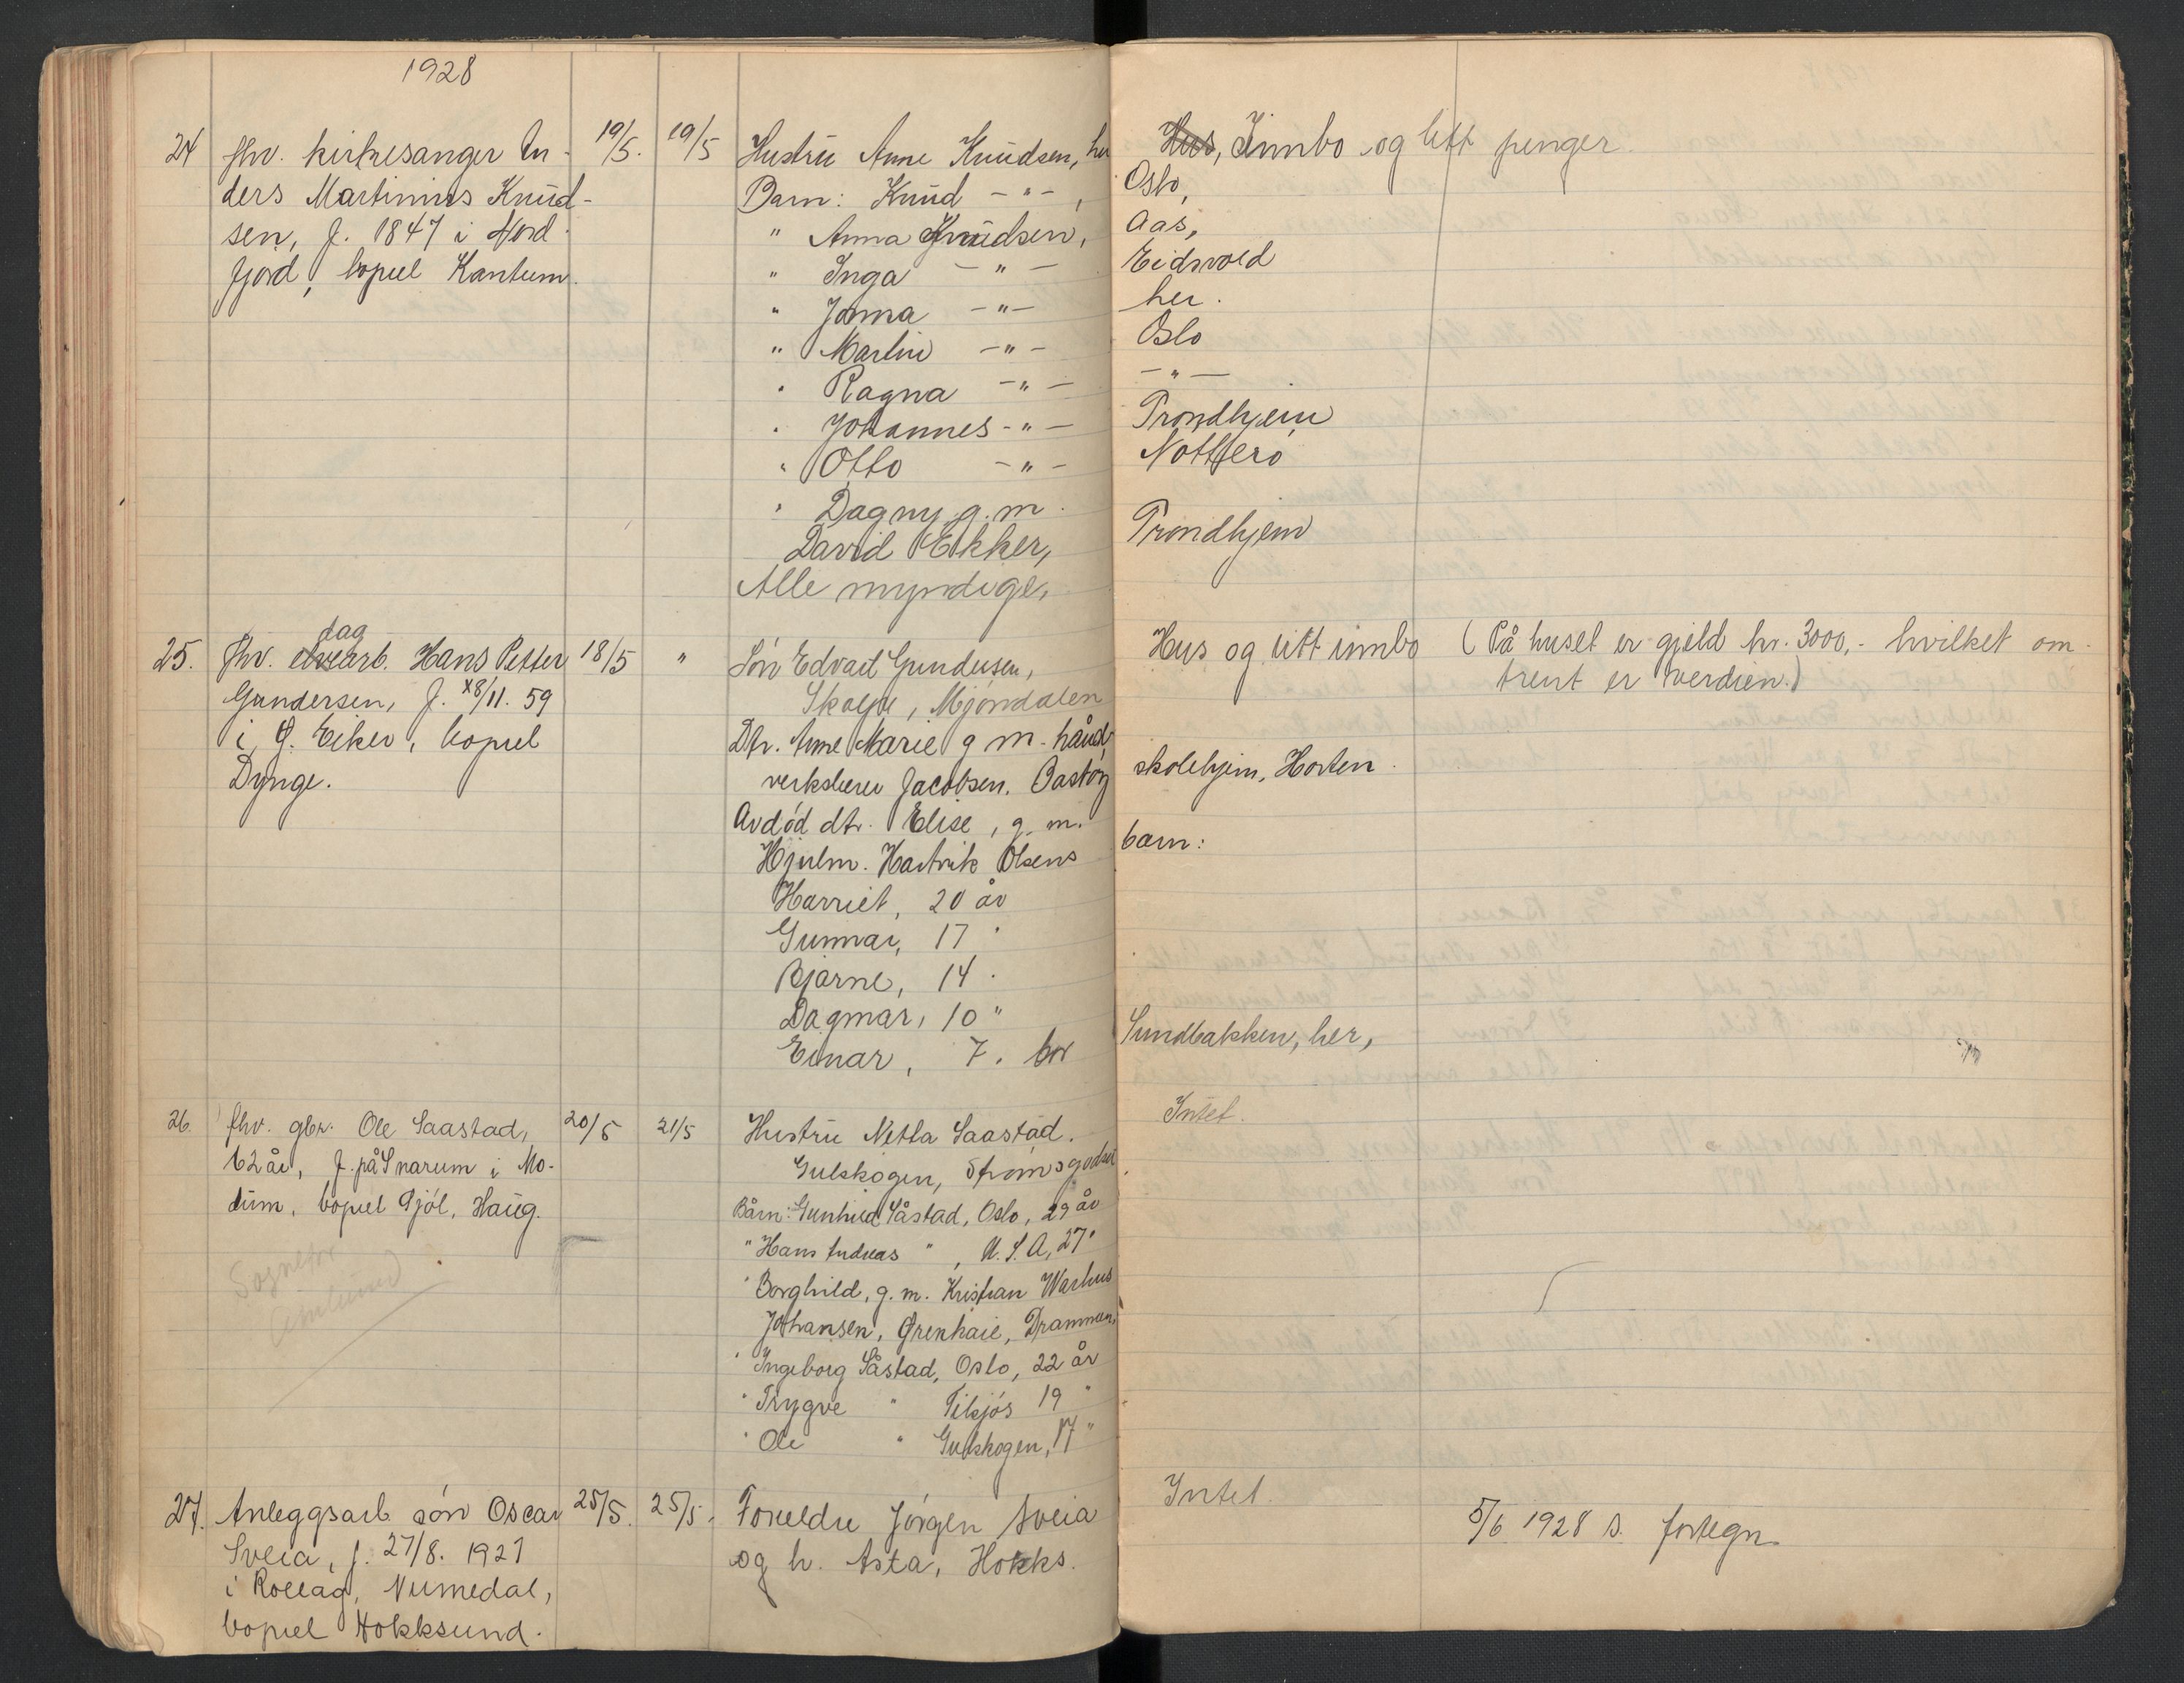 1928
24 fhv. kirkesanger An- 19/5. 19/5 Hustru Anne Knudsen, her Hus, Innbo og litt penger.
ders Martinius Knud- Barn: Knud - " - , Oslo,
sen, f. 1847 i Nord- " Anna Knudsen, Aas,
fjord, bopel Kantum. " Inga - " - Eidsvold
" Joma - " - her.
" Martin - " - Oslo
" Ragna - " - - " -
" Johannes - " - Trondhjem
" Otto - " - Nötterö
" Dagny g.m.
David Ekker, Trondhjem
Alle myndige.
dag
25. fhv. elvearb. Hans Petter 18/5 " Sön Edvart Gundersen, Hus og litt innbo (På huset er gjeld kr. 3000,- hvilket om-
Gundersen, f. 8/11. 59 Mjöndalen trent er verdien.)
i Ø. Eiker, bopel Dtr. Anne Marie g m. hånd-
Dynge. verkslærer Jacobsen. Bastöy skolehjem, Horten.
Avdöd dtr. Elise, g. m.
Hjulm. Hartvik Olsens barn:
Harriet, 20 år
Gunnar, 17 "
Bjarne, 14 "
Dagmar, 10 "
Einar, 7 " bor Sundbakken, her,
26. fhv. gbr. Ole Saastad, 20/5 21/5 Hustru Netta Saastad. Intet.
62 år, f. på Snarum i Mo- Gulskogen, Strömsgodset
dum, bopel Gjöl, Haug. Barn: Gunhild Såstad, Oslo, 29 år
" Hans Andreas " , U.S.A, 27 "
" Borghild, g. m. Kristian Warhus
Johansen, Grenhaie, Drammen,
" Ingeborg Såstad, Oslo, 22 år
" Trygve " 19 "
" Ole " Gulskogen, 17 "
27. Anleggsarb. sön Oscar 25/5. 25/5. Foreldre Jörgen Sveia Intet.
Sveia, f. 27/8. 1921 og h. Asta, Hokks. 5/6 1928 s. fortegn.
i Rollag, Numedal,
bopel Hokksund.